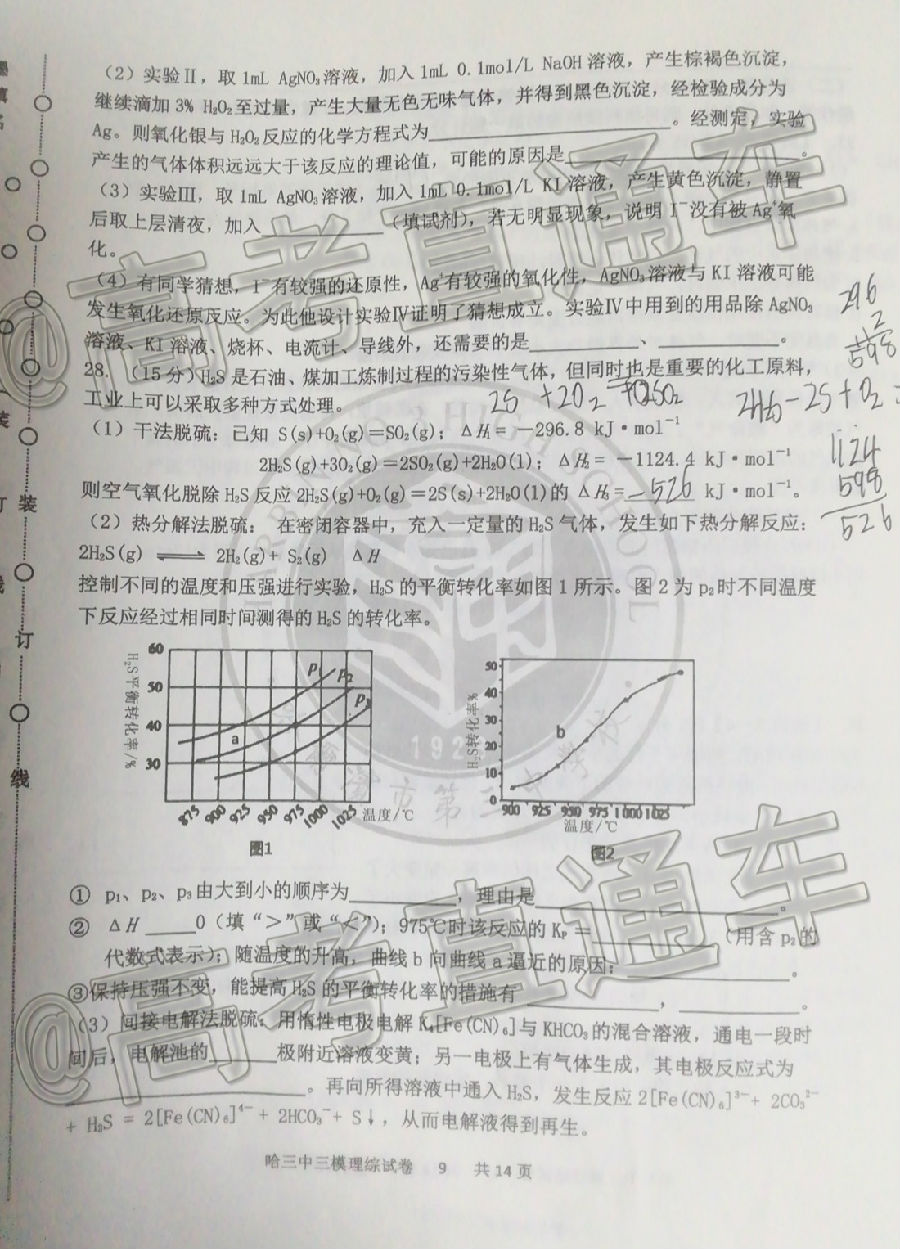 (2)实验Ⅱ,取1mL AgNO₃溶液,加入1mL 0.1mol/L NaOH溶液,产生棕褐色沉淀,
继续滴加3% H₂O₂至过量,产生大量无色无味气体,并得到黑色沉淀,经检验成分为
Ag。则氧化银与H₂O₂反应的化学方程式为________。经测定,实验
产生的气体体积远远大于该反应的理论值,可能的原因是________。
(3)实验Ⅲ,取1mL AgNO₃溶液,加入1mL 0.1mol/L KI溶液,产生黄色沉淀,静置
后取上层清夜,加入________(填试剂),若无明显现象,说明I⁻没有被Ag⁺氧
化。
(4)有同学猜想,I⁻有较强的还原性,Ag⁺有较强的氧化性,AgNO₃溶液与KI溶液可能
发生氧化还原反应。为此他设计实验Ⅳ证明了猜想成立。实验Ⅳ中用到的用品除AgNO₃
溶液、KI溶液、烧杯、电流计、导线外,还需要的是________、________。
296
2
598
28.(15分)H₂S是石油、煤加工炼制过程的污染性气体,但同时也是重要的化工原料,
工业上可以采取多种方式处理。
2S +2O₂ 2SO₂
2H₂S-2S+O₂=
(1)干法脱硫:已知 S(s)+O₂(g)=SO₂(g);ΔH₁= −296.8 kJ·mol⁻¹
2H₂S(g)+3O₂(g)=2SO₂(g)+2H₂O(l);ΔH₂= −1124.4 kJ·mol⁻¹
则空气氧化脱除H₂S反应2H₂S(g)+O₂(g)=2S(s)+2H₂O(l)的ΔH₃=-526 kJ·mol⁻¹。
1124
598
526
(2)热分解法脱硫: 在密闭容器中,充入一定量的H₂S气体,发生如下热分解反应:
2H₂S(g) ⇌ 2H₂(g)+ S₂(g) ΔH
控制不同的温度和压强进行实验,H₂S的平衡转化率如图1所示。图2为p₂时不同温度
下反应经过相同时间测得的H₂S的转化率。
H₂S平衡转化率/%
60
50
40
30
P₁ P₂ P₃
a
875 900 925 950 975 1000 1025 温度/℃
图1
H₂S转化率%
50
40
30
20
10
0
b
900 925 950 975 1000 1025
温度/℃
图2
① p₁、p₂、p₃由大到小的顺序为________,理由是________。
② ΔH ____0(填“>”或“<”);975℃时该反应的Kₚ=________(用含p₂的
代数式表示);随温度的升高,曲线b向曲线a逼近的原因:________。
③保持压强不变,能提高H₂S的平衡转化率的措施有________,________。
(3)间接电解法脱硫:用惰性电极电解K₄[Fe(CN)₆]与KHCO₃的混合溶液,通电一段时
间后,电解池的____极附近溶液变黄;另一电极上有气体生成,其电极反应式为
________。再向所得溶液中通入H₂S,发生反应2[Fe(CN)₆]³⁻+ 2CO₃²⁻
+ H₂S = 2[Fe(CN)₆]⁴⁻+ 2HCO₃⁻+ S↓,从而电解液得到再生。
哈三中三模理综试卷 9 共14页
装
订
线
@高考直通车
@高考直通车